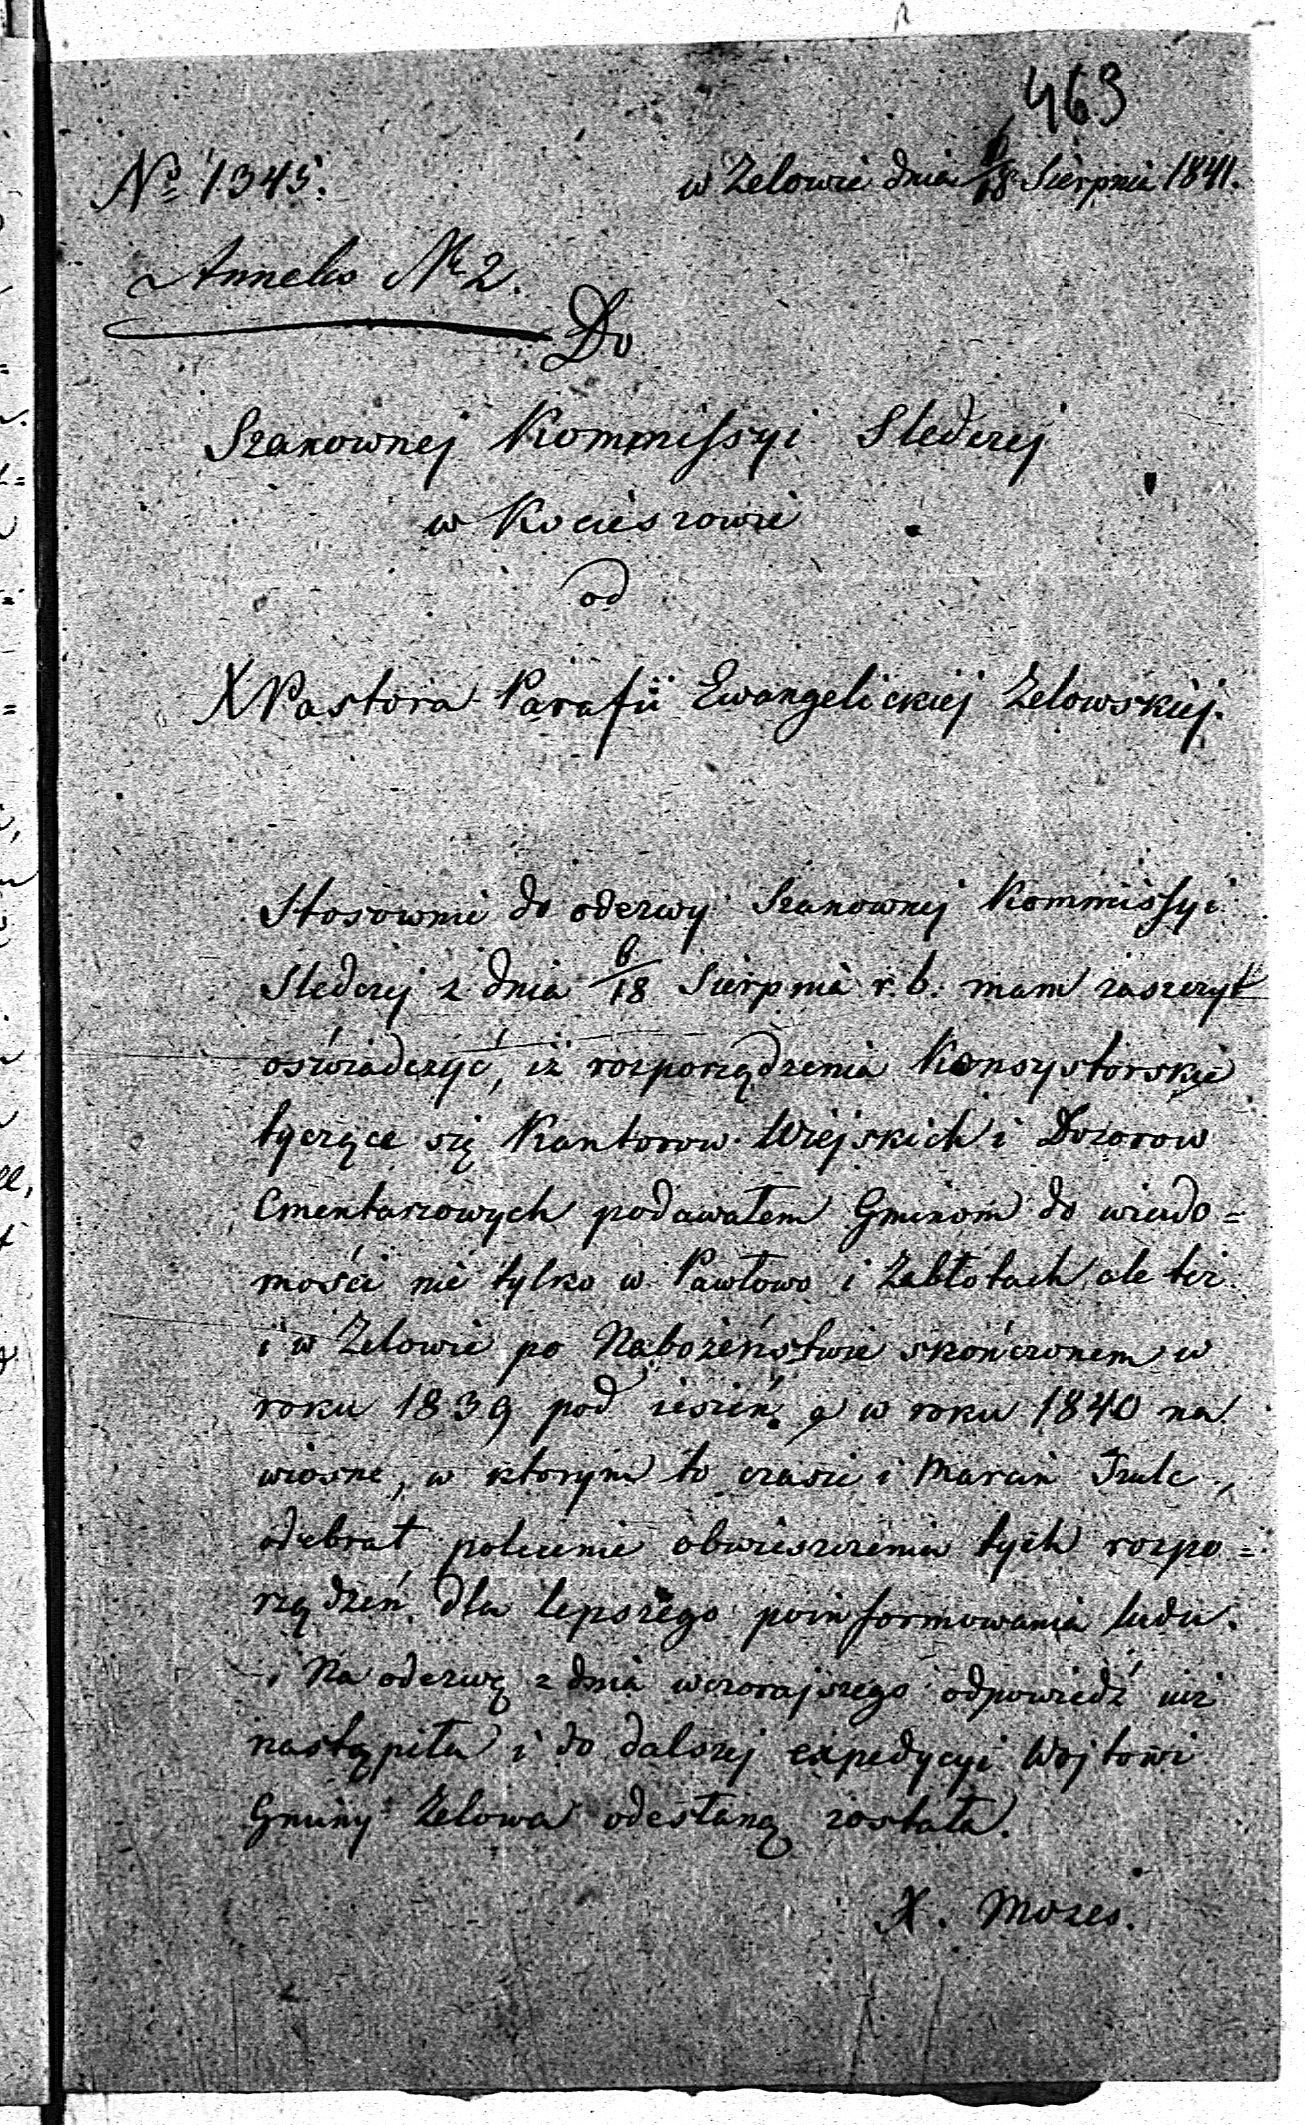 463
No 1345.
w Zelowie dnia 6/18 Sierpnia 1841.
Anneks Nr 2.
Do
Szanownej Kommissyi Sledczej
w Kocieszowie
od
X Pastora Parafii Ewangelickiej Zelowskiej.
Stosownie do odezwy Szanownej Kommissyi
Sledczej z dnia 6/18 Sierpnia r. b. mam zaszczyt
oświadczyć, iż rozporządzenia Konsystorskie
tyczące się Kantorow Wiejskich i Dozorow
Cmentarzowych podawałem Gminom do wiado=
mości nie tylko w Pawłowo i Zabłotach ale też
i w Zelowie po Nabożeństwie skończonem w
roku 1839 pod iesień w roku 1840 na
wiosne, w ktorym to czasie i Marcin Szulc,
odebrał polecenie obwieszczenia tych rozpo=
rządzeń dla lepszego poinformowania ludu.
Na odezwę z dnia wczorajszego odpowiedź iuż
nastąpiła i do dalszej expedycyi Wojtowi
Gminy Zelowa odesłaną została.
X. Mozes.